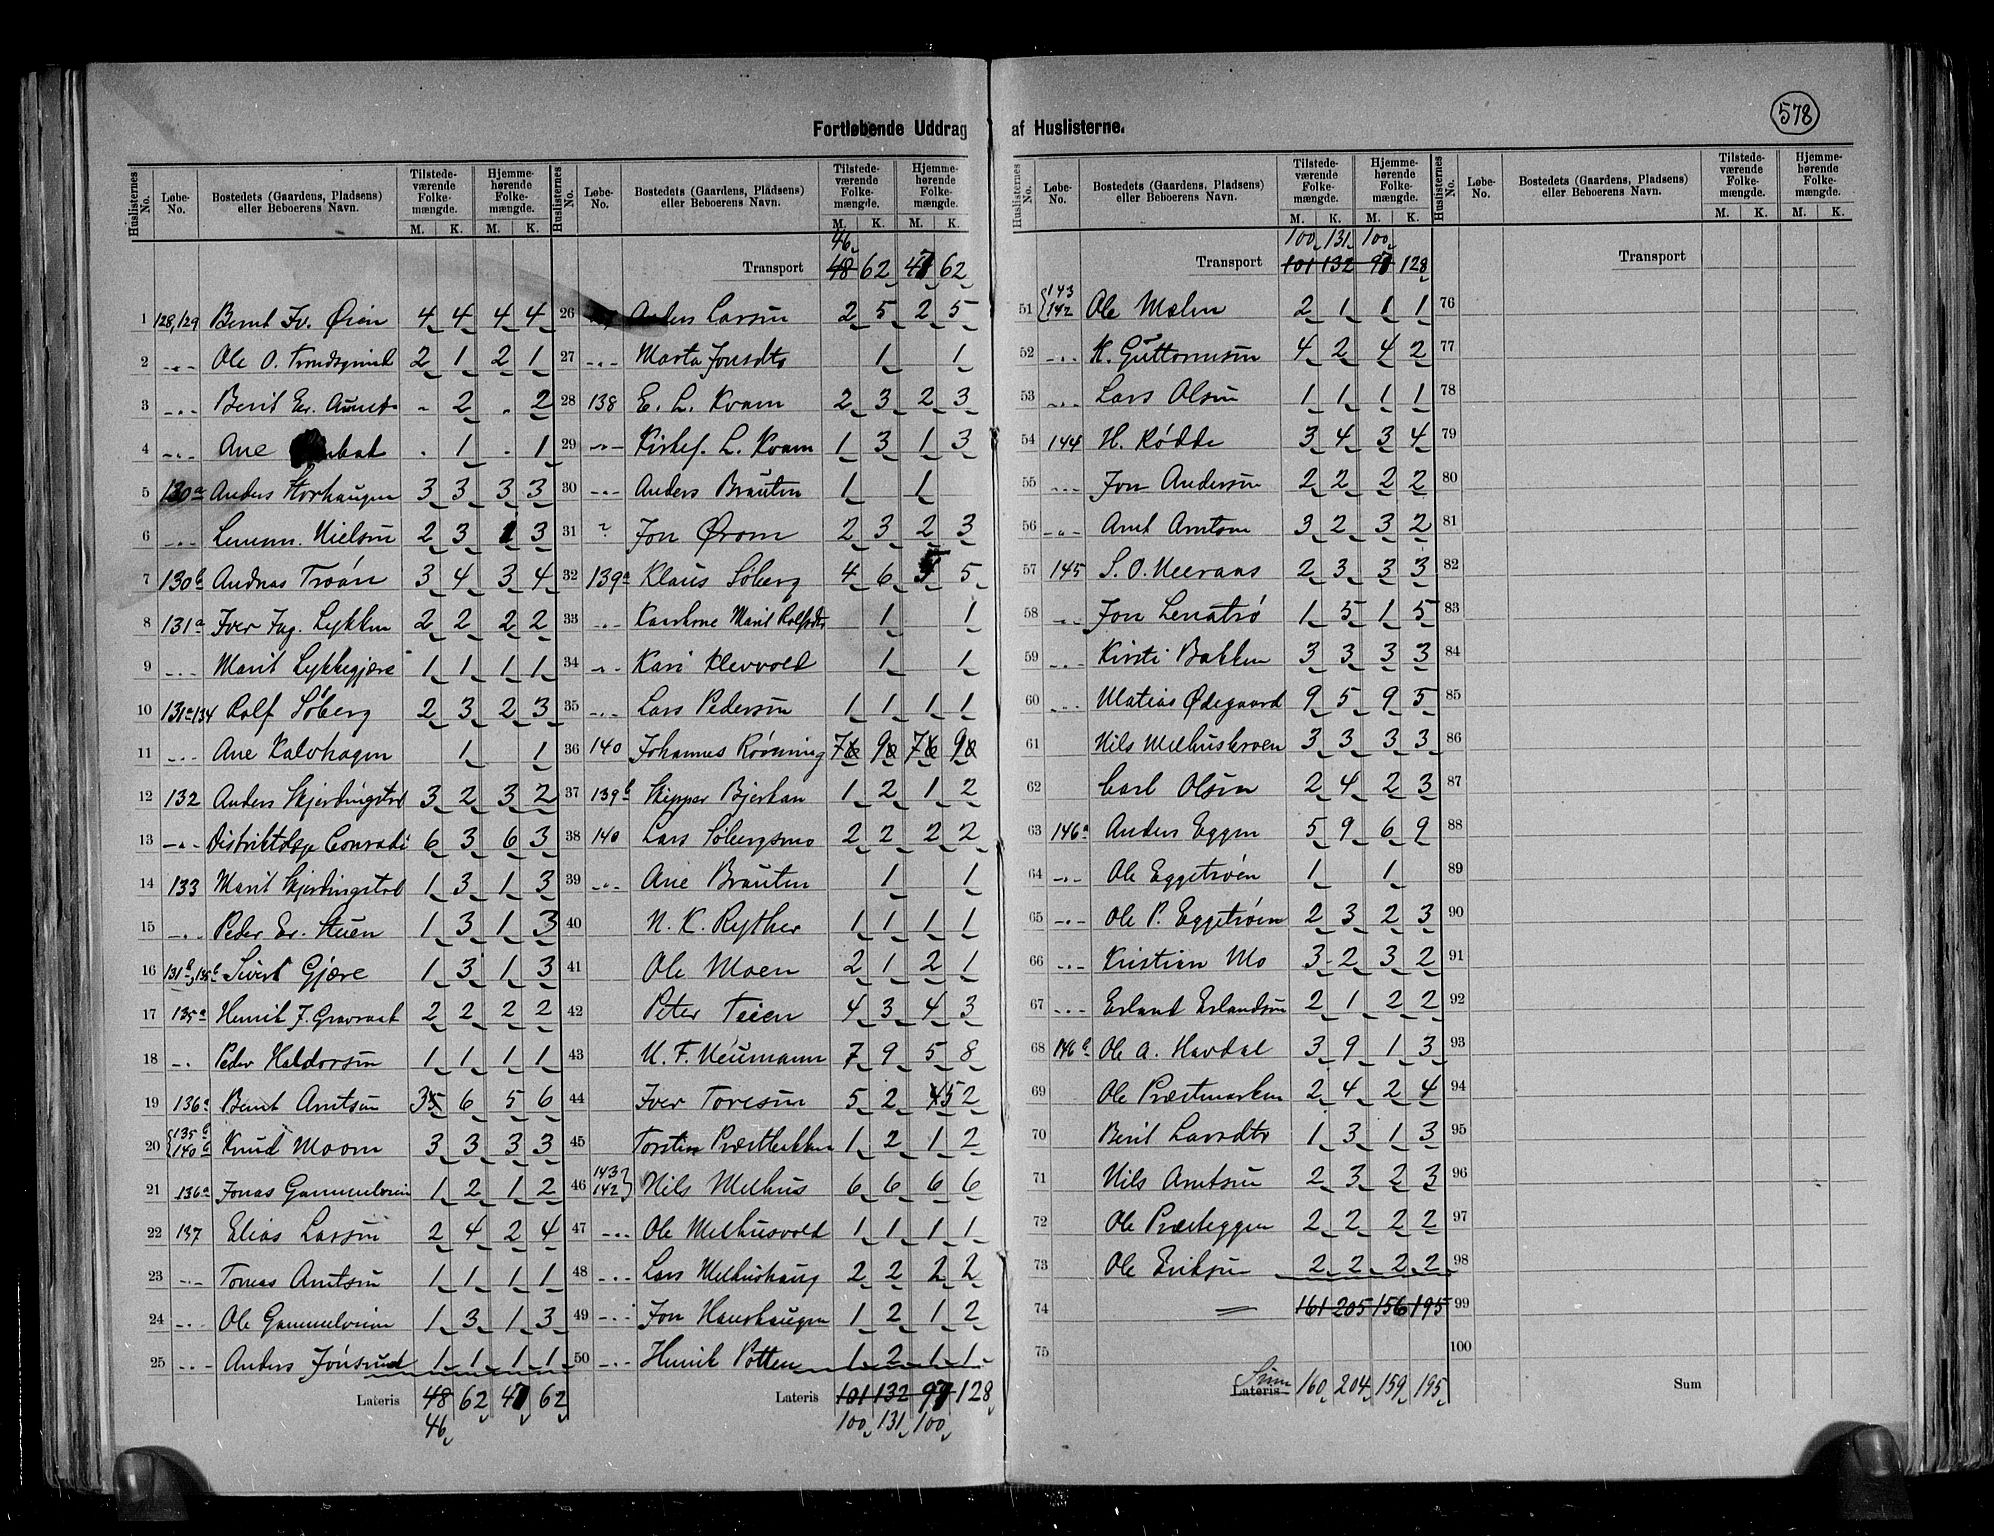 578
Fortløbende Uddrag af Huslisterne.
Huslisternes No. Løbe-No. Bostedets (Gaardens, Pladsens) eller Beboerens Navn. Tilstedeværende Folkemængde. M. K. Hjemmehørende Folkemængde. M. K.
1 128,129 Bernt Iv. Øien 4 4 4 4
2 -"- Ole O. 2 1 2 1
3 -"- Berit Er. - 2 - 2
4 -"- Ane - 1 - 1
5 130a Anders Storhaugen 3 3 3 3
6 -"- Nielsen 2 3 1 3
7 130b Andreas Troøn 3 4 3 4
8 131a Iver Ing. Løkken 2 2 2 2
9 -"- Marit Løkkegjære 1 1 1 1
10 131a 134 Rolf Søberg 2 3 2 3
11 -"- Ane Kalvhagen 1 1
12 132 Anders Skjerdingstad 3 2 3 2
13 -"- Distriktslæge Conradi 6 3 6 3
14 133 Marit Skjerdingstad 1 3 1 3
15 -"- Peder Er. Stuen 1 3 1 3
16 131b, 135b Sivert Gjære 1 3 1 3
17 135a Henrik J. Gravraak 2 2 2 2
18 -"- Peder Haldorsen 1 1 1 1
19 136a Bernt Arntsen 35 6 5 6
20 135b 140b Knud Moom 3 3 3 3
21 136a Jonas Gammelveien 1 2 1 2
22 137 Elias Larsen 2 4 2 4
23 -"- Tomas Arntsen 1 1 1 1
24 -"- Ole Gammelveien 1 3 1 3
25 -"- Anders Jonsrud 1 1 1 1
Lateris 48 62 47 62
46
46
Transport 48 62 47 62
26 137 Anders Larsen 2 5 2 5
27 -"- Marta Jonsdtr 1 1
28 138 E. L. Kvam 2 3 2 3
29 -"- Kirkes. L. Kvam 1 3 1 3
30 -"- Anders Brauten 1 1
31 " Jon Ørom 2 3 2 3
32 139a Klaus Søberg 4 6 5
33 -"- Marit Rolfsdtr 1 1
34 -"- Kari Klevvold 1 1
35 -"- Lars Pedersen 1 1 1 1
36 140 Johannes Rønning 7 9 7 9
37 139b Skipper Bjerkan 1 2 1 2
38 140 Lars Søbergsmo 2 2 2 2
39 -"- Ane Brauten 1 1
40 N. K. Ryther 1 1 1 1
41 Ole Moen 2 1 2 1
42 Peter Teien 4 3 4 3
43 U. F. Neumann 7 9 5 8
44 Iver Toresen 5 2 45 2
45 Torsten Præstbakken 1 2 1 2
46 143 142 Nils Melhus 6 6 6 6
47 -"- Ole Melhusvold 1 1 1 1
48 -"- Lars Melhushaug 2 2 2 2
49 -"- Jon Haushaugen 1 2 1 2
50 -"- Henrik Potten 1 2 1 1
Lateris 101 132 97 128
100 131 100
100 131 100
Transport 101 132 97 128
51 143 142 Ole Malen 2 1 1 1
52 -"- K. Guttormsen 4 2 4 2
53 -"- Lars Olsen 1 1 1 1
54 144 H. Rødde 3 4 3 4
55 -"- Jon Andersen 2 2 2 2
56 -"- Arnt Arntsen 3 2 3 2
57 145 S. O. Meeraas 2 3 3 3
58 -"- Jon Lenatrø 1 5 1 5
59 -"- Kirsti Bakken 3 3 3 3
60 -"- Matias Ødegaard 9 5 9 5
61 Nils Melhuskroen 3 3 3 3
62 Carl Olsen 2 4 2 3
63 146a Anders Eggen 5 9 6 9
64 -"- Ole Eggetrøen 1 1
65 -"- Ole P. Eggetrøen 2 3 2 3
66 -"- Kristian Mo 3 2 3 2
67 -"- Erland Erlandsen 2 1 2 2
68 146b Ole A. Havdal 3 9 1 3
69 Ole Præstmarken 2 4 2 4
70 Berit Larsdtr 1 3 1 3
71 Nils Arntsen 2 3 2 3
72 Ole Præsteggen 2 2 2 2
73 Ole Eriksen 2 2 2 2
74 161 205 156 195
75
Lateris Sum 160 204 159 195
Transport
76
77
78
79
80
81
82
83
84
85
86
87
88
89
90
91
92
93
94
95
96
97
98
99
100
Sum